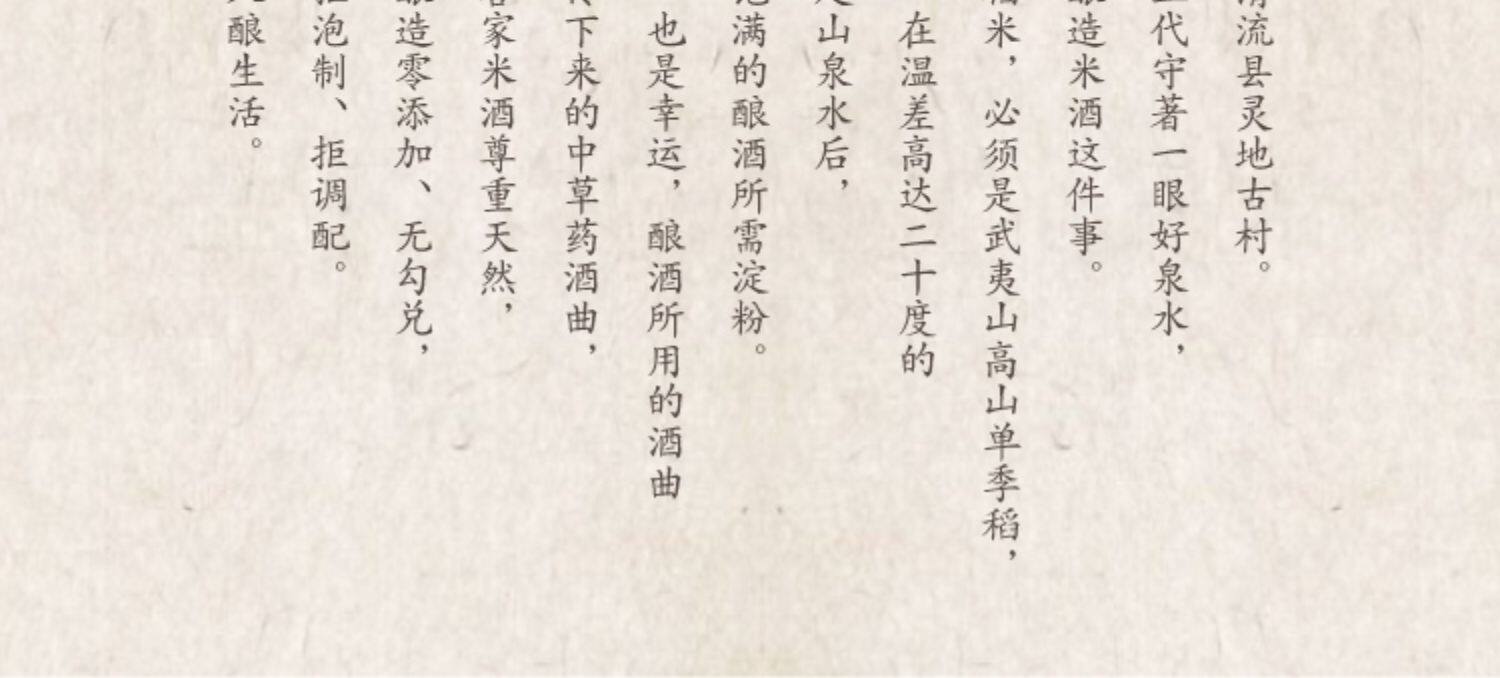 流县灵地古村。
代守著一眼好泉水，
造米酒这件事。
米，必须是武夷山高山单季稻，
在温差高达二十度的
山泉水后，
满的酿酒所需淀粉。
也是幸运，酿酒所用的酒曲
下来的中草药酒曲，
家米酒尊重天然，
造零添加、无勾兑，
泡制、拒调配。
酿生活。